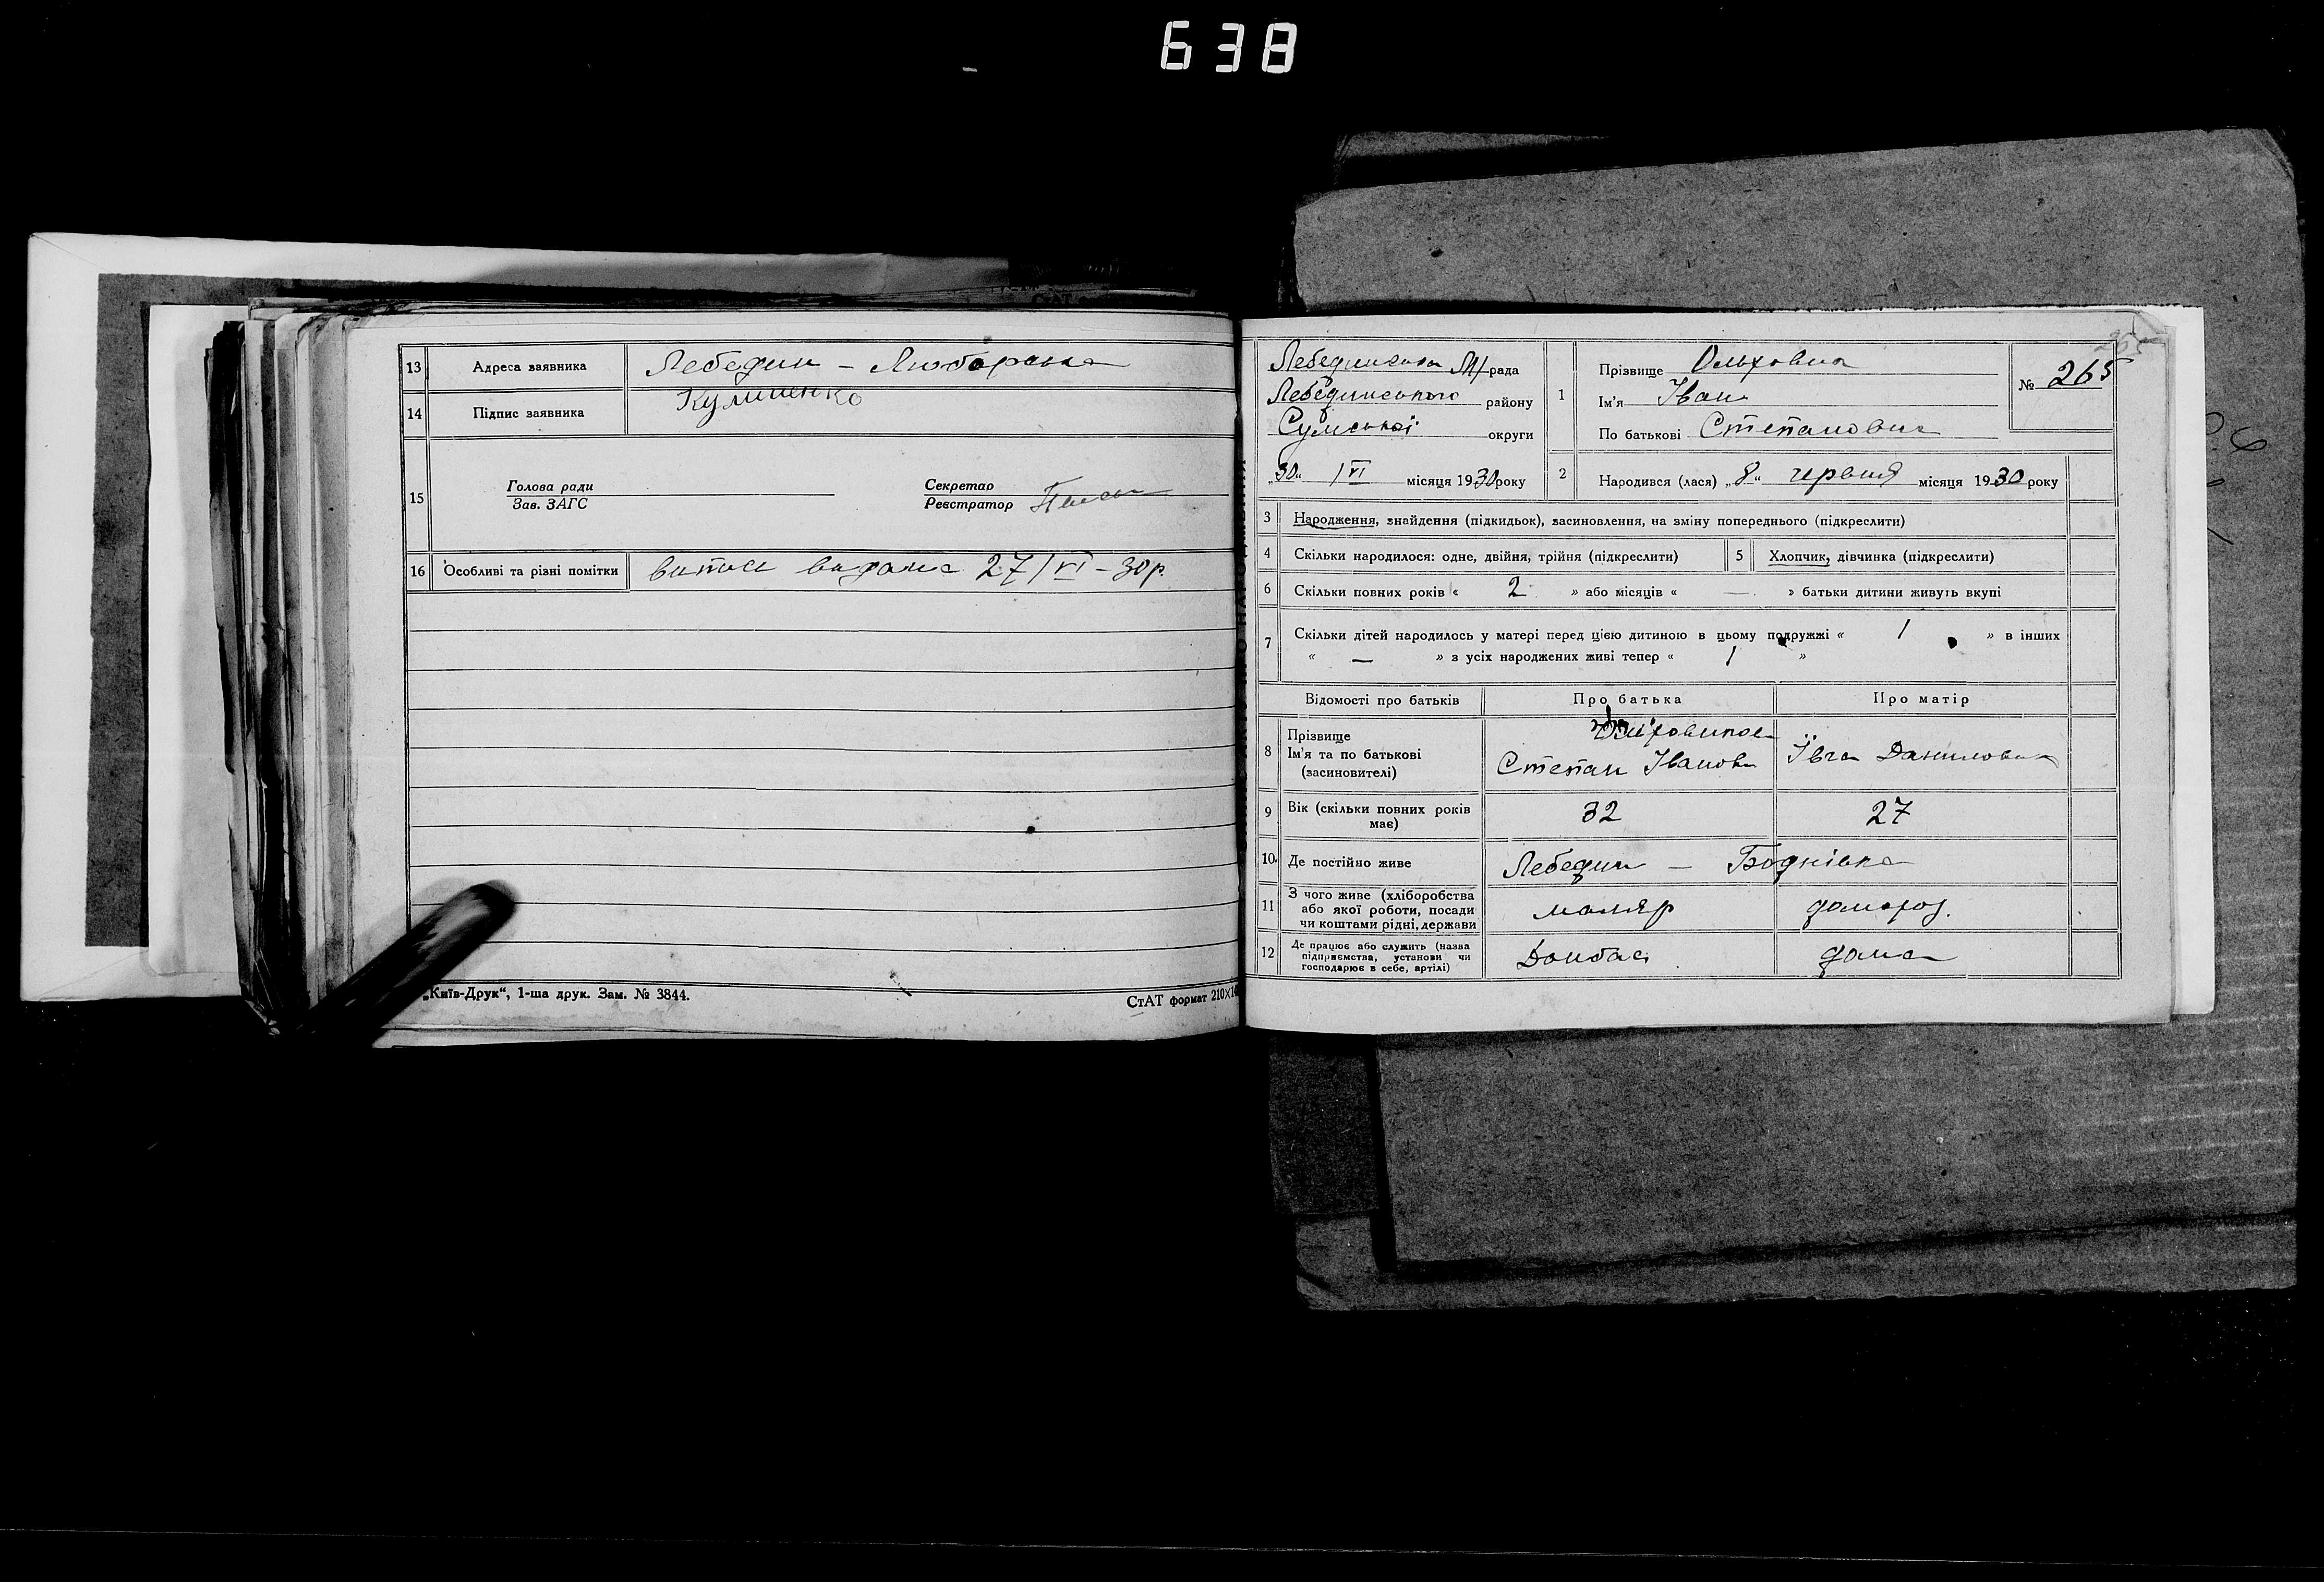 638
13 Адреса заявника Лебедин –
14 Підпис заявника Кулишенко
15 Голова ради Секретар
Зав. ЗАГС Реєстратор
16 Особливі та різні помітки випись видана 27/VI–30р.
„Київ-Друк“, 1-ша друк. Зам. № 3844. СтАТ формат 210×14
Лебединська М/рада
Лебединського району
Сумської округи
„30“ /VI місяця 1930 року
1 Прізвище
Ім'я Іван
По батькові Степанович
№ 265
2 Народився (лася) „8“ червня місяця 1930 року
3 Народження, знайдення (підкидьок), засиновлення, на зміну попереднього (підкреслити)
4 Скільки народилося: одне, двійня, трійня (підкреслити) 5 Хлопчик, дівчинка (підкреслити)
6 Скільки повних років « 2 » або місяців « — » батьки дитини живуть вкупі
7 Скільки дітей народилось у матері перед цією дитиною в цьому подружжі « 1 » в інших
« — » з усіх народжених живі тепер « 1 »
Відомості про батьків Про батька Про матір
8 Прізвище
Ім'я та по батькові
(засиновителі) Степан Іванов Ївга Данилова
9 Вік (скільки повних років
має) 32 27
10. Де постійно живе Лебедин – Боднівка
11 З чого живе (хліборобства
або якої роботи, посади
чи коштами рідні, держави маляр домогос.
12 Де працює або служить (назва
підприємства, установи чи
господарює в себе, артілі) Донбас дома